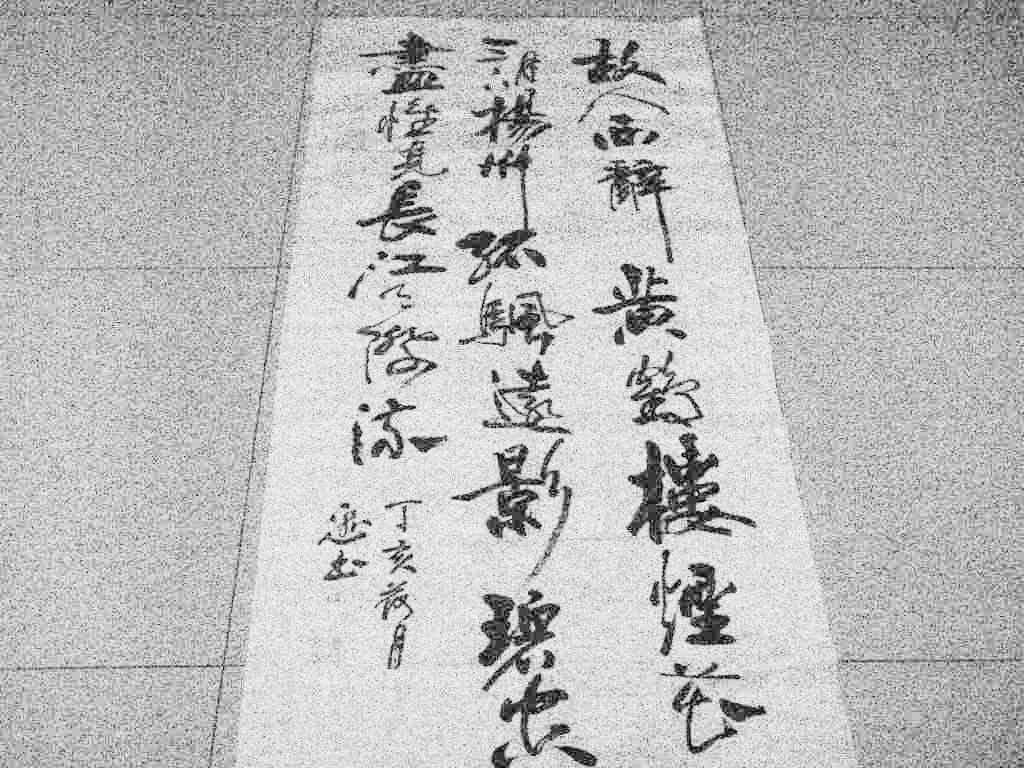 故人西辭黃鶴樓煙花
三月下楊州孤颿遠影碧空
盡惟見長江天際流
丁亥荷月
書